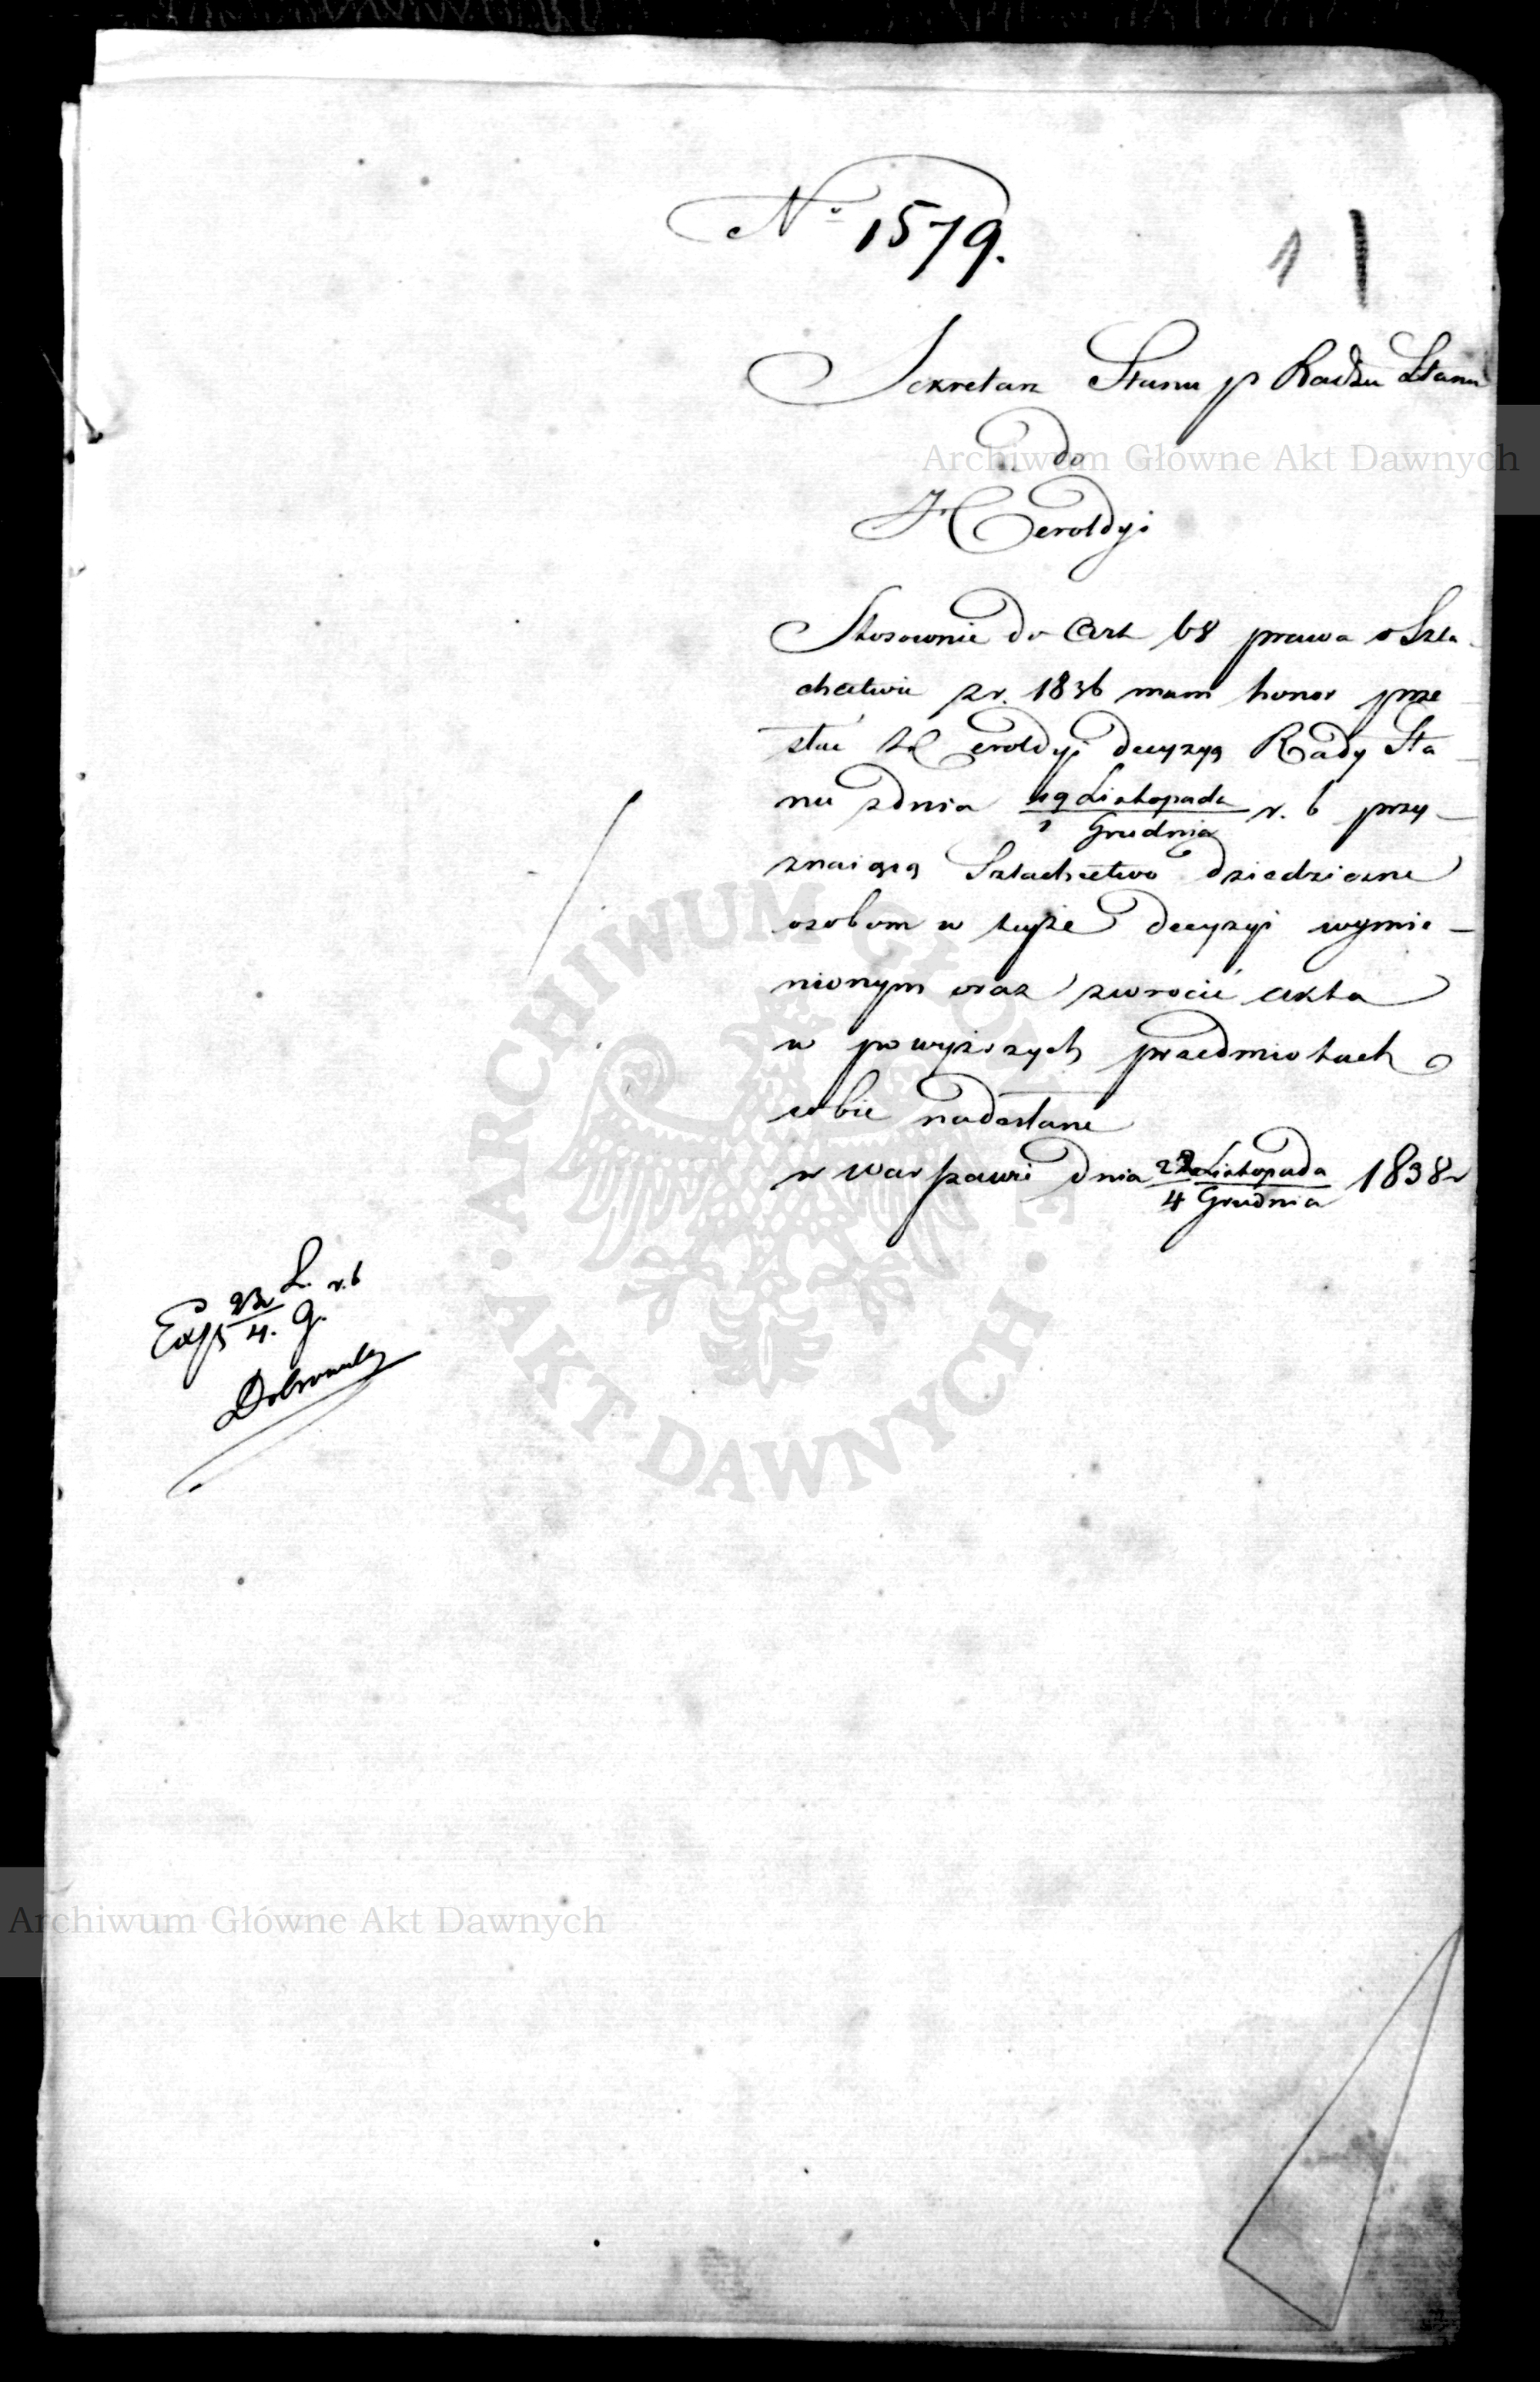 No 1579.
1
Sekretarz Stanu p Radzu Stanu
do
Heroldyi
Stosownie do Art 68 prawa o Szla-
chectwie z r. 1836 mam honor prze
słać Heroldyi decyzyą Rady Sta
nu z dnia 19 Listopada / 1 Grudnia r. b przy-
znaiącą Szlachectwo dziedziczne
osobom w teyże decyzyi wymie-
nionym oraz zwrócić akta
w powyższych przedmiotach
sobie nadesłane
w Warszawie dnia 22 Listopada / 4 Grudnia 1838 r
Exp 22 L. / 4. G. r. b
Archiwum Główne Akt Dawnych
ARCHIWUM GŁÓWNE · AKT DAWNYCH ·
Archiwum Główne Akt Dawnych